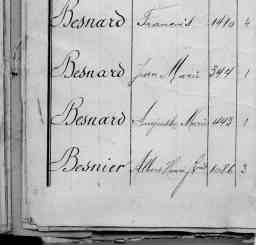 Besnard Francois 1410 4
Besnard Jean Marie 344 1
Besnard Auguste Marie 443 1
Besnier Albert Henri 1086 3